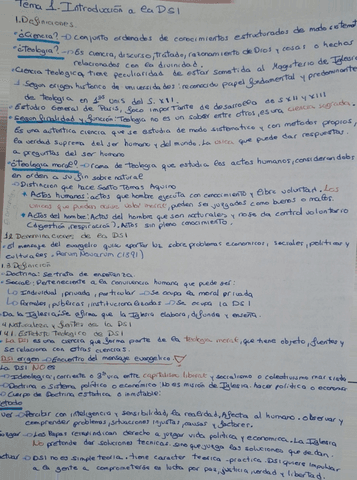 Tema 1-Introducción a la DSI
1. Definiciones
¿Ciencia? → conjunto ordenados de conocimientos estructurados de modo sistem
¿Teología? → Es ciencia, discurso, tratado, razonamiento de Dios y cosas o hechos
relacionados con la divinidad.
Ciencia Teológica, tiene peculiaridad de estar sometida al Magisterio de Iglesia
Según origen histórico de universidades: reconocido papel fundamental y predominante
de Teología en 1º S. XII.
Estudio General de París, foco importante de desarrollo de S XII y XIII
Según finalidad y función Teología no es un saber entre otros, es una ciencia
Es una auténtica ciencia que se estudia de modo sistemático y con métodos propios,
la verdad suprema del ser humano y del mundo. La única que puede dar respuestas.
a preguntas del ser humano
¿Teología moral? → rama de Teología que estudia los actos humanos, considerandolos
en orden a su fin sobrenatural
Distinción que hace Santo Tomás Aquino
Actos humanos: actos que hombre ejecuta con conocimiento y libre voluntad. Los
únicos que pueden moral, pueden ser juzgados como buenos o malos.
Actos del hombre: Actos del hombre que son naturales y no se da control voluntario
(digestión, respiración). Actos sin pleno conocimiento.
1.2 Denominaciones de la DSI
el mensaje del evangelio quiere aportar luz sobre problemas económicos, sociales, políticos y
culturales. Rerum Novarum (1891)
1.3 Definición
Doctrina: se trata de enseñanza
Social: Perteneciente a la convivencia humana que puede ser:
Individual, privada, particular → Se ocupa la moral privada
Grandes, públicas, institucionalizadas → Se ocupa la DSI
De la Iglesia: Se afirma que la Iglesia elabora, difunde y enseña.
4 Naturaleza y fuentes de la DSI
1.4.1. Estatuto Teológico de DSI
La DSI es una ciencia que forma parte de la teología moral, que tiene objeto, fuentes y
se relaciona con otras ciencias.
DSI origen → Encuentro del mensaje evangélico
La DSI NO es
Ideología, corriente o 3ª vía entre capitalismo liberal y socialismo o colectivismo marxista
Doctrina o sistema, político o económico: No es misión de Iglesia, hacer política o economía
Cuerpo de Doctrina estática o inmutable:
Ver → Percibir con inteligencia y sensibilidad, la realidad, afecta al humano. Observar y
comprender problemas, situaciones injustas, causas y factores.
Juzgar → Los Papas reivindican derecho a juzgar vida política y económica. La Iglesia
NO pretende dar soluciones técnicas sino que juzga las soluciones que se dan.
Actuar → DSI no es simple teoría, tiene carácter teórico-práctico. DSI quiere impulsar
a la gente a comprometerse en lucha por paz, justicia, verdad y libertad.